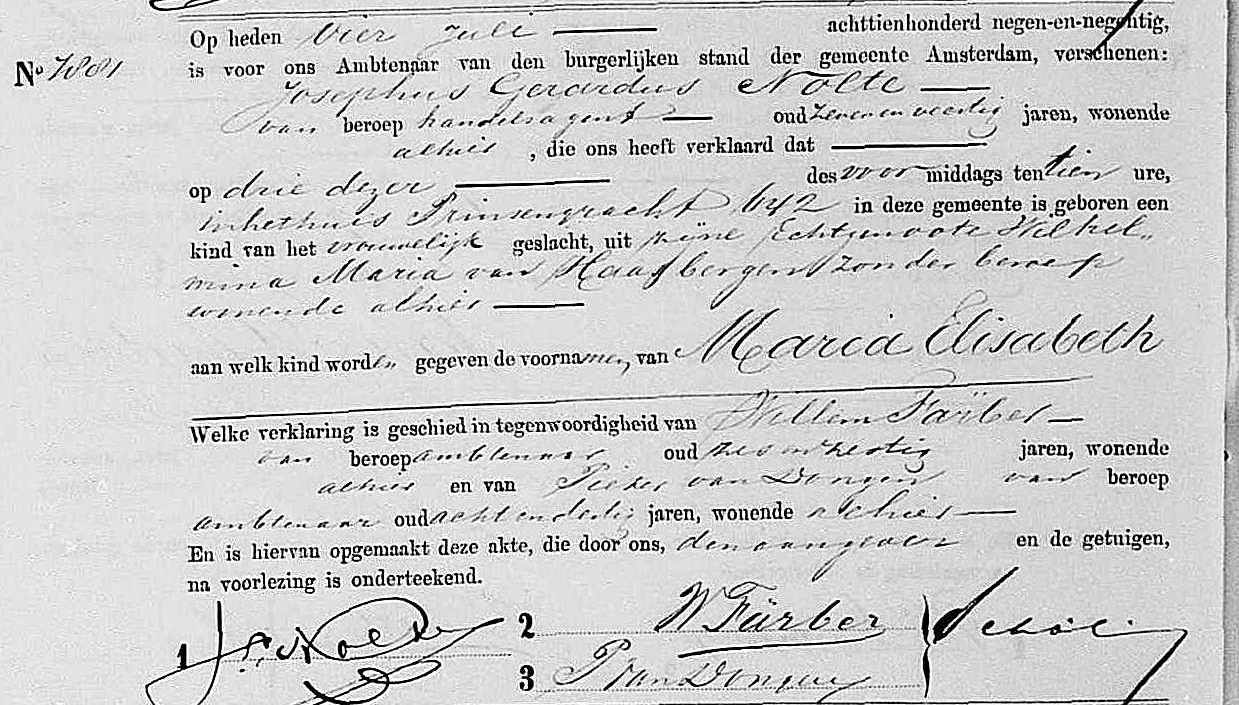 Op heden Vier Juli achttienhonderd negen-en-negentig,
No 7881 is voor ons Ambtenaar van den burgerlijken stand der gemeente Amsterdam, verschenen:
Josephus Gerardus Nolte
van beroep handelsagent oud zevenenveertig jaren, wonende
alhier, die ons heeft verklaard dat
op drie dezer des voormiddags ten tien ure,
in het huis Prinsengracht 642 in deze gemeente is geboren een
kind van het vrouwelijk geslacht, uit zijne Echtgenoote Wilhel„
mina Maria van Haafbergen zonder beroep
wonende alhier
aan welk kind worden gegeven de voornamen, van Maria Elisabeth
Welke verklaring is geschied in tegenwoordigheid van Willem Färber
van beroep ambtenaar oud jaren, wonende
alhier en van Pieter van Dongen van beroep
ambtenaar oud achtendertig jaren, wonende alhier
En is hiervan opgemaakt deze akte, die door ons, den aangever en de getuigen,
na voorlezing is onderteekend.
1 J. G. Nolte 2 W Färber
3 P van Dongen